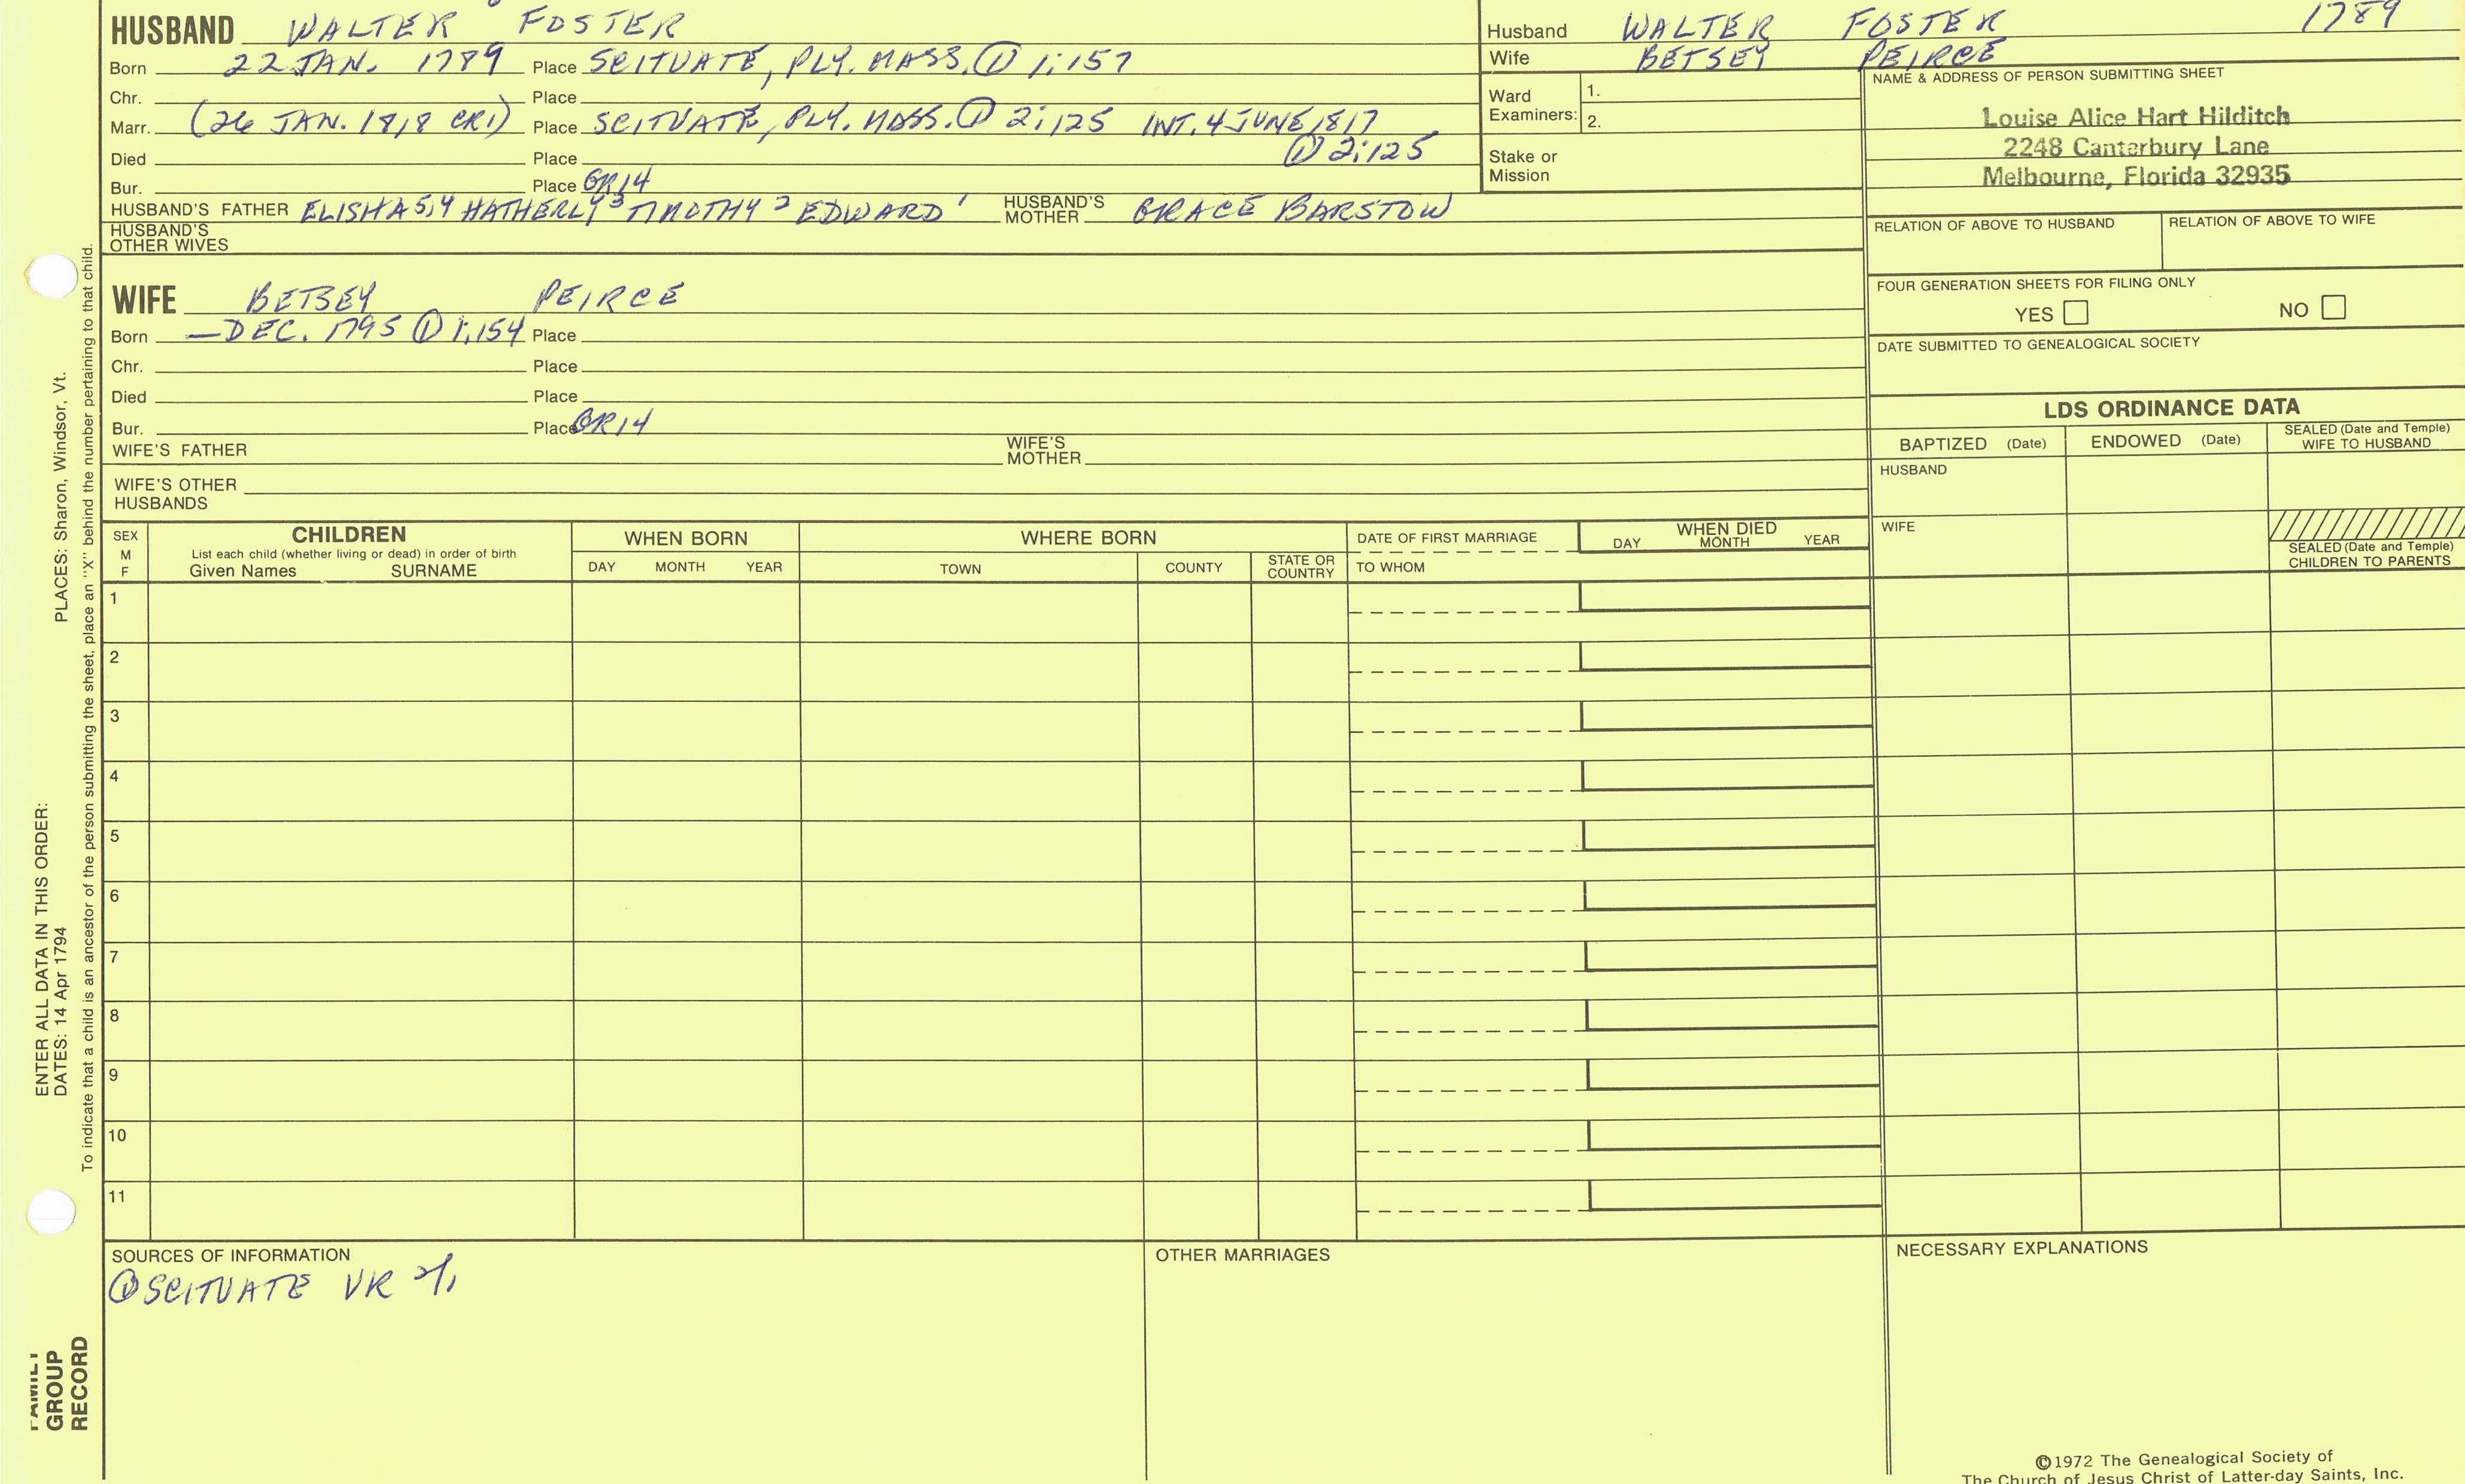 HUSBAND WALTER FOSTER
Born 22 JAN. 1789 Place SCITUATE, PLY. MASS. ① 1:157
Chr. Place
Marr. (26 JAN. 1818 CR1) Place SCITUATE, PLY. MASS. ① 2:125 INT. 4 JUNE 1817
① 2:125
Died Place
Bur. Place GR14
HUSBAND'S FATHER ELISHA 5,4 HATHERLY 3 TIMOTHY 2 EDWARD 1 HUSBAND'S MOTHER GRACE BARSTOW
HUSBAND'S
OTHER WIVES
WIFE BETSEY PEIRCE
Born — DEC. 1795 ① 1:154 Place
Chr. Place
Died Place
Bur. Place GR14
WIFE'S FATHER WIFE'S MOTHER
WIFE'S OTHER
HUSBANDS
Husband WALTER FOSTER 1789
Wife BETSEY PEIRCE
Ward
Examiners:
1.
2.
Stake or
Mission
NAME & ADDRESS OF PERSON SUBMITTING SHEET
Louise Alice Hart Hilditch
2248 Canterbury Lane
Melbourne, Florida 32935
RELATION OF ABOVE TO HUSBAND RELATION OF ABOVE TO WIFE
FOUR GENERATION SHEETS FOR FILING ONLY
YES NO
DATE SUBMITTED TO GENEALOGICAL SOCIETY
LDS ORDINANCE DATA
BAPTIZED (Date) ENDOWED (Date) SEALED (Date and Temple)
WIFE TO HUSBAND
HUSBAND
WIFE
SEALED (Date and Temple)
CHILDREN TO PARENTS
SEX
M
F
CHILDREN
List each child (whether living or dead) in order of birth
Given Names SURNAME
WHEN BORN
DAY MONTH YEAR
WHERE BORN
TOWN COUNTY STATE OR COUNTRY
DATE OF FIRST MARRIAGE
TO WHOM
WHEN DIED
DAY MONTH YEAR
1
2
3
4
5
6
7
8
9
10
11
SOURCES OF INFORMATION
① SCITUATE VR
OTHER MARRIAGES
NECESSARY EXPLANATIONS
©1972 The Genealogical Society of
The Church of Jesus Christ of Latter-day Saints, Inc.
ENTER ALL DATA IN THIS ORDER:
DATES: 14 Apr 1794 PLACES: Sharon, Windsor, Vt.
To indicate that a child is an ancestor of the person submitting the sheet, place an "X" behind the number pertaining to that child.
FAMILY
GROUP
RECORD